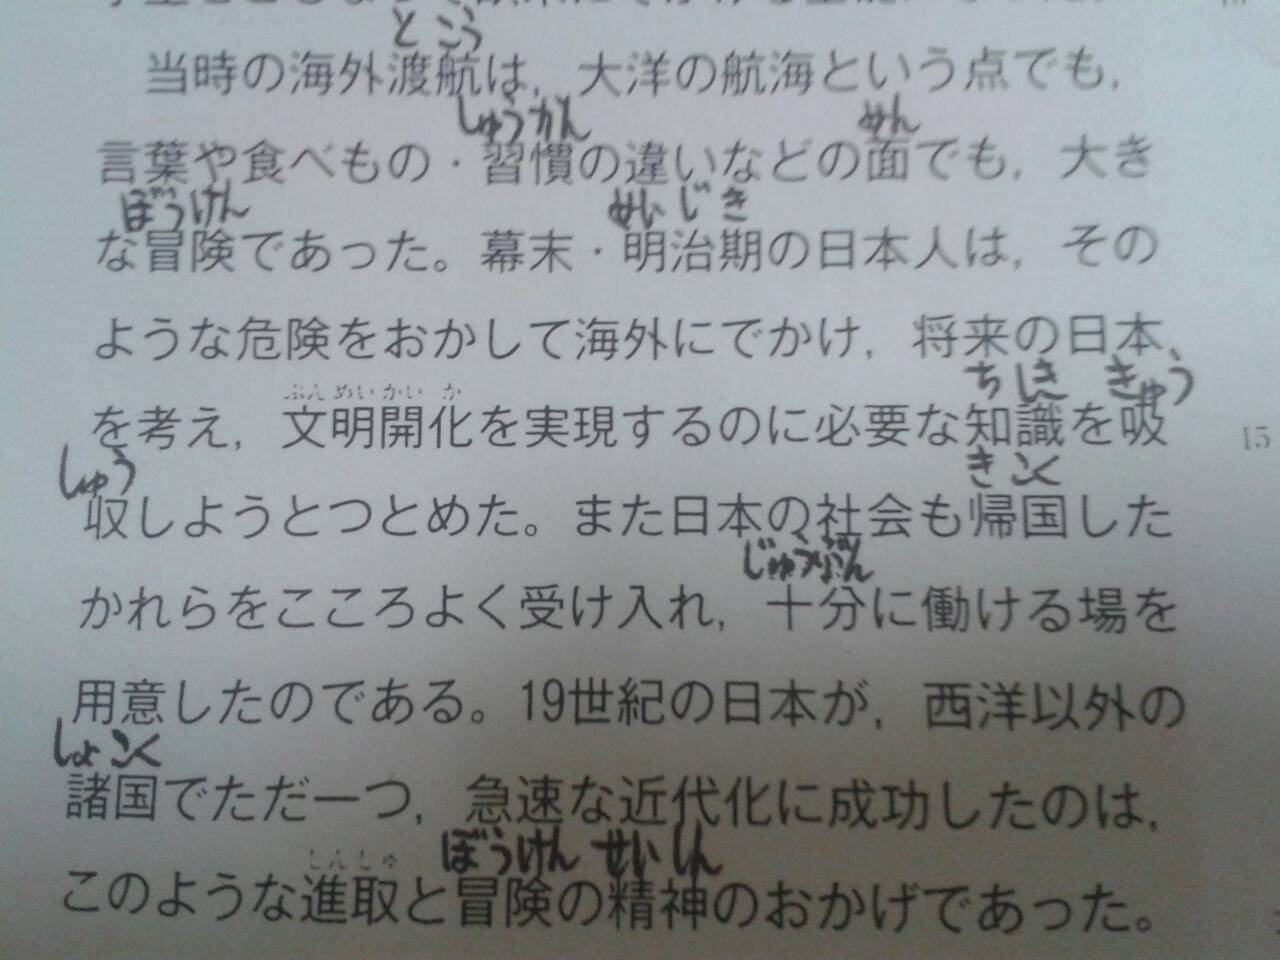 とこう
当時の海外渡航は，大洋の航海という点でも，
しゅうかん めん
言葉や食べもの・習慣の違いなどの面でも，大き
ぼうけん めいじき
な冒険であった。幕末・明治期の日本人は，その
ような危険をおかして海外にでかけ，将来の日本
ぶんめいかいか ちしき きゅう
を考え，文明開化を実現するのに必要な知識を吸
しゅう きこく
収しようとつとめた。また日本の社会も帰国した
じゅうぶん
かれらをこころよく受け入れ，十分に働ける場を
用意したのである。19世紀の日本が，西洋以外の
しょこく
諸国でただ一つ，急速な近代化に成功したのは，
しんしゅ ぼうけん せいしん
このような進取と冒険の精神のおかげであった。
15